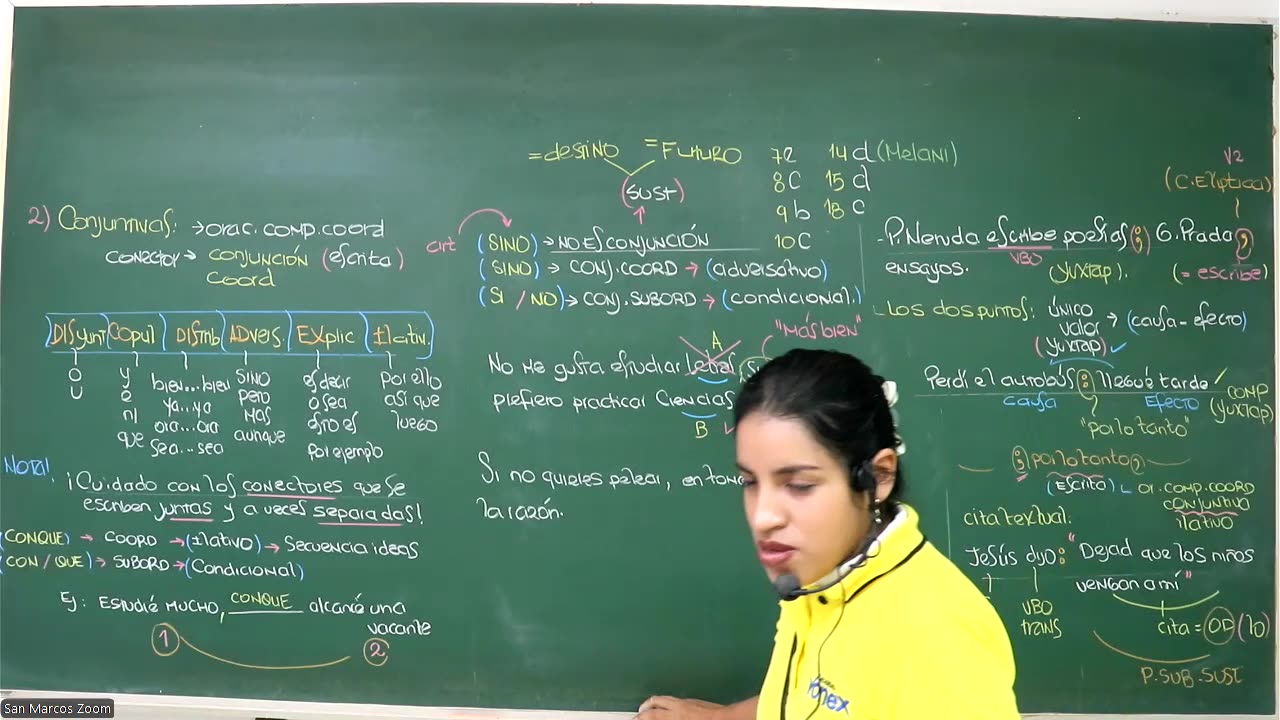 =destino =Futuro
(sust)
7e 14d (Melani)
8c 15d
9b 18c
10c
2) Conjuntivas: →orac. comp. coord
conector → conjunción (escrita)
coord
Disyunt Copul Distrib Advers. Explic Ilativ.
o
u
y
e
ni
que
bien...bien
ya...ya
ora...ora
sea...sea
sino
pero
mas
aunque
es decir
o sea
esto es
por ejemplo
por ello
así que
luego
Nota!
¡Cuidado con los conectores que se
escriben juntas y a veces separadas!
(CONQUE) → COORD →(Ilativo)→ Secuencia ideas
(CON / QUE) → SUBORD →(Condicional)
Ej: Estudié mucho, CONQUE alcancé una
vacante
1 2
art (SINO) → NO ES CONJUNCIÓN
(SINO) → CONJ. COORD → (adversativo)
(SI / NO) → CONJ. SUBORD → (condicional.)
"Más bien"
A
No me gusta estudiar Letras
prefiero practicar Ciencias
B
Si no quieres pelear,
la razón.
V2
(C. Elíptica)
- P. Neruda escribe poesías; G. Prada,
VBO
ensayos. (yuxtap). (= escribe)
Los dos puntos: único
valor → (causa-efecto)
(yuxtap)
Perdí el autobús: llegué tarde
causa Efecto
COMP
(yuxtap)
"por lo tanto"
; por lo tanto,
(Escrita) or. comp. coord
conjuntivo
ilativo
cita textual:
Jesús dijo: "Dejad que los niños
vengan a mí"
VBO
trans
cita = OD (lo)
P. SUB. SUST
Yonex
San Marcos Zoom